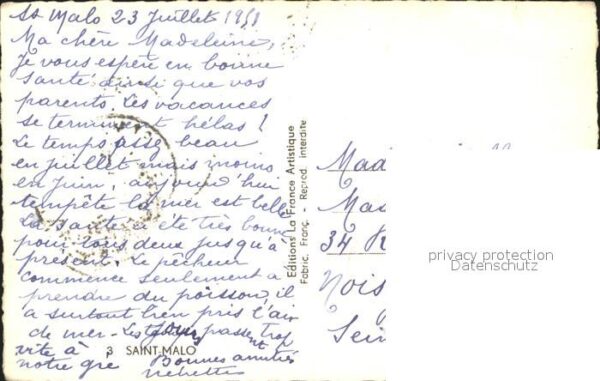 St Malo 23 Juillet 1951
Ma chère Madeleine,
Je vous espère en bonne
santé ainsi que vos
parents. Les vacances
se terminent hélas !
Le temps assez beau
en juillet mais moins
en Juin, aujourd'hui
tempête la mer est belle
La santé a été très bonne
pour tous deux jusqu'à
présent. le pêcheur
commence seulement à
prendre du poisson, il
a surtout bien pris l'air
de mer. Les jours passent trop
vite à
notre gré Bonnes amitiés
3 SAINT-MALO
Editions La France Artistique
Fabric. Franç. - Reprod. interdite
Mad
Mas
34 R
Nois
Sein
privacy protection
Datenschutz